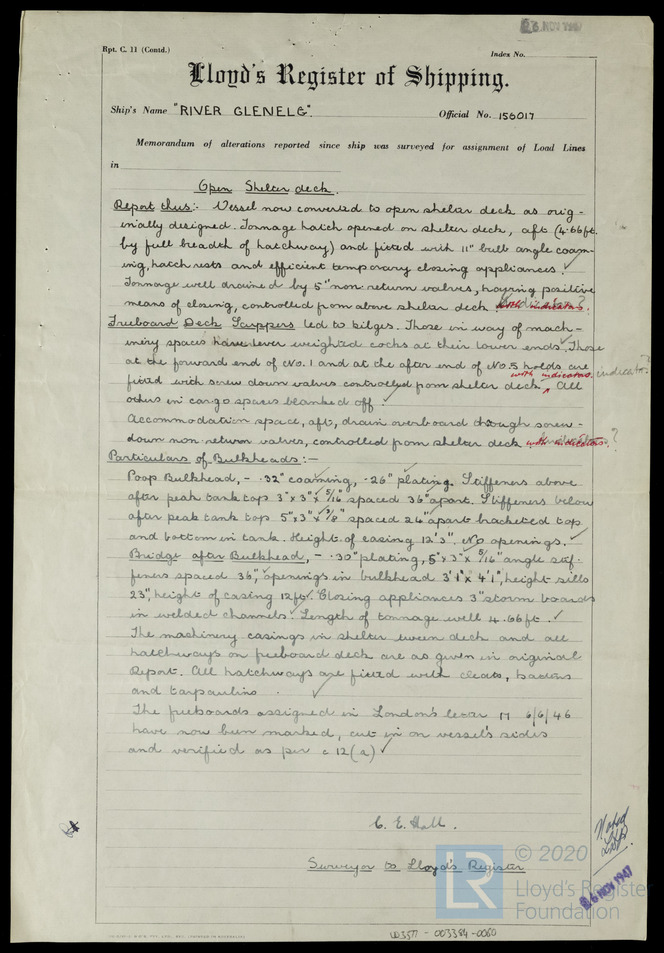 26 NOV 1947
Rpt. C. 11 (Contd.)
Index No.
Lloyd's Register of Shipping.
Ship's Name "RIVER GLENELG". Official No. 156017
Memorandum of alterations reported since ship was surveyed for assignment of Load Lines
in
Open Shelter deck.
Report thus:- Vessel now converted to open shelter deck as orig-
inally designed. Tonnage hatch opened on shelter deck, aft (4.66ft.
by full breadth of hatchway) and fitted with 11" bulb angle coam-
ing, hatch rests and efficient temporary closing appliances.
Tonnage well drained by 5" non return valves, having positive
means of closing, controlled from above shelter deck with indicators. ?
Freeboard Deck Scuppers led to bilges. Those in way of mach-
inery spaces have lever weighted cocks at their lower ends. Those
at the forward end of No. 1 and at the after end of No. 5 holds are
with indicators. indicator?
fitted with screw down valves controlled from shelter deck. All
others in cargo spaces blanked off.
Accommodation space, aft, drain overboard through screw-
down non return valves, controlled from shelter deck with indicators. ?
Particulars of Bulkheads:-
Poop Bulkhead, - .32" coaming, .26" plating. Stiffeners above
after peak tank top 3"x3"x5/16" spaced 36" apart. Stiffeners below
after peak tank top 5"x3"x3/8" spaced 24" apart bracketed top
and bottom in tank. Height of casing 12'3". No openings.
Bridge after Bulkhead, - .30" plating, 5"x3"x5/16" angle stif-
feners spaced 36", openings in bulkhead 3'1"x4'1", height sills
23", height of casing 12ft. Closing appliances 3" storm boards
in welded channels. Length of tonnage well 4.66ft.
The machinery casings in shelter tween deck and all
hatchways on freeboard deck are as given in original
Report. All hatchways are fitted with cleats, battens
and tarpaulins.
The freeboards assigned in London's letter M 6/6/46
have now been marked, cut in on vessel's sides
and verified as per c 12(a)
C. E. Hall.
Surveyor to Lloyd's Register
Noted
26 NOV 1947
© 2020
Lloyd's Register
Foundation
LR
W3577-003384-0060